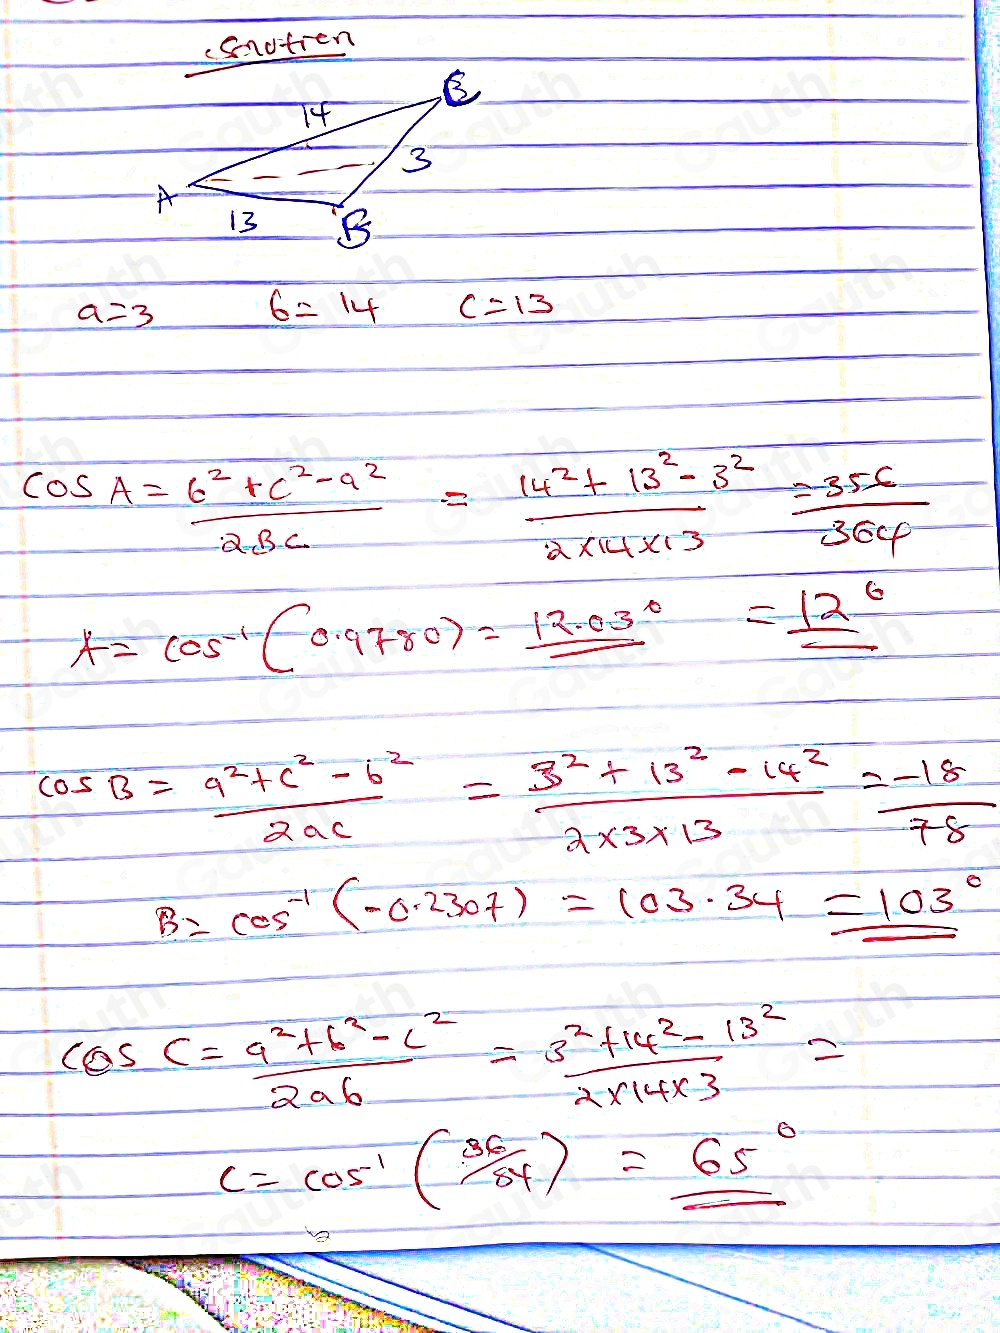 Solution
14
C
3
A
13
B
a=3 b=14 c=13
cos A = b²+c²-a² / 2Bc = 14²+13²-3² / 2×14×13 = 356 / 364
A = cos⁻¹(0.9780) = 12.03° = 12°
cos B = a²+c²-b² / 2ac = 3²+13²-14² / 2×3×13 = -18 / 78
B= cos⁻¹(-0.2307) = 103.34 = 103°
cos C = a²+b²-c² / 2ab = 3²+14²-13² / 2×14×3 =
C = cos⁻¹(36/84) = 65°